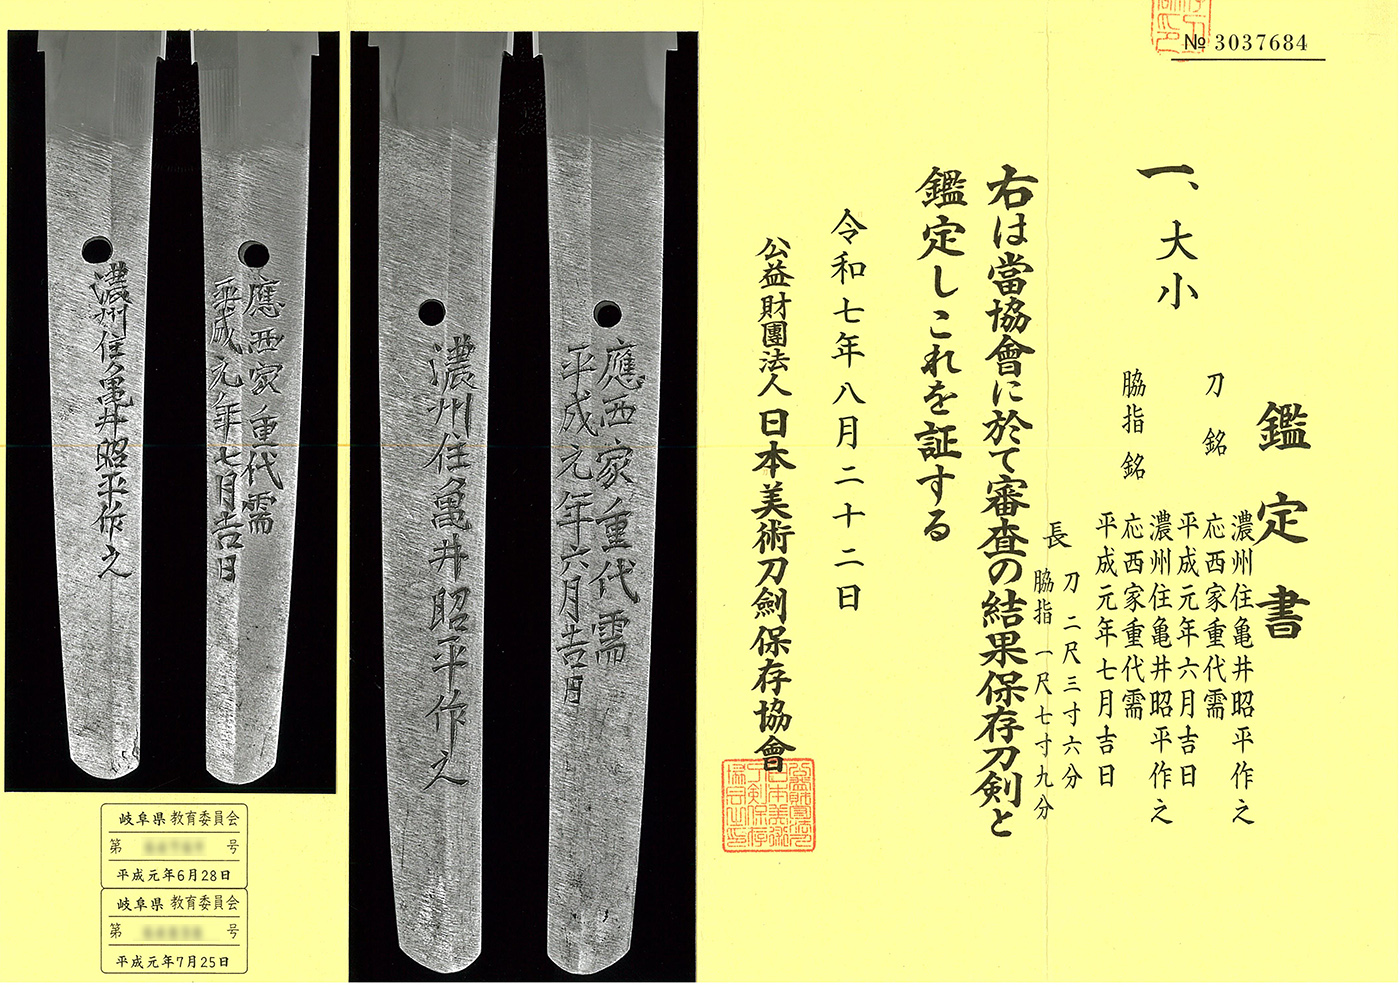 № 3037684
鑑定書
一、大小
刀 銘 濃州住亀井昭平作之
応西家重代需
平成元年六月吉日
脇指 銘 濃州住亀井昭平作之
応西家重代需
平成元年七月吉日
長 刀 二尺三寸六分
脇指 一尺七寸九分
右は當協會に於て審査の結果保存刀剣と
鑑定しこれを証する
令和七年八月二十二日
公益財團法人日本美術刀劍保存協會
應西家重代需
平成元年六月吉日
濃州住亀井昭平作之
應西家重代需
平成元年七月吉日
濃州住亀井昭平作之
岐阜県 教育委員会
第 号
平成元年6月28日
岐阜県 教育委員会
第 号
平成元年7月25日